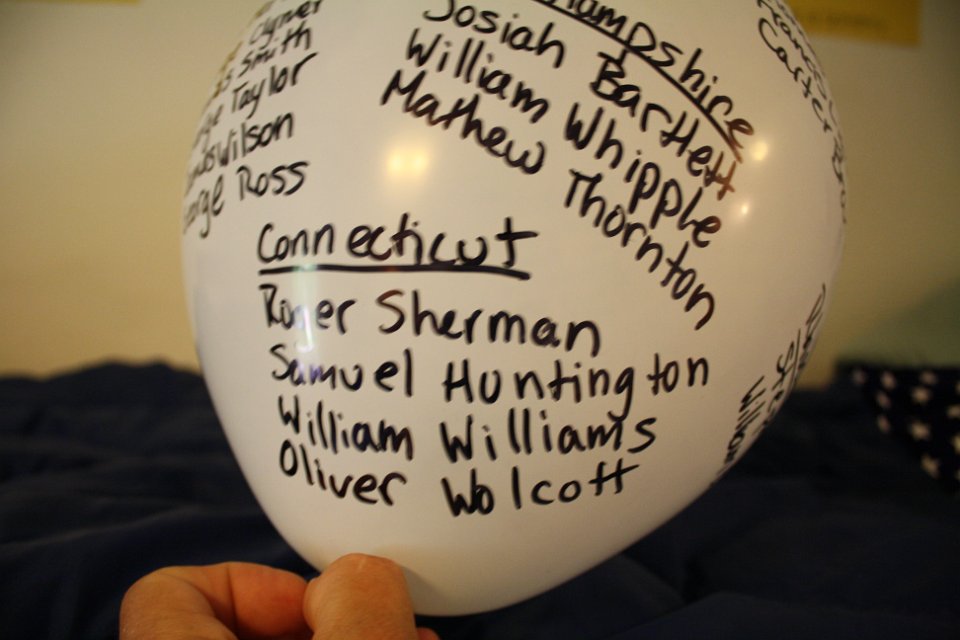 Clymer
Smith
Taylor
Wilson
George Ross
Hampshire
Josiah Bartlett
William Whipple
Mathew Thornton
Connecticut
Roger Sherman
Samuel Huntington
William Williams
Oliver Wolcott
Carter